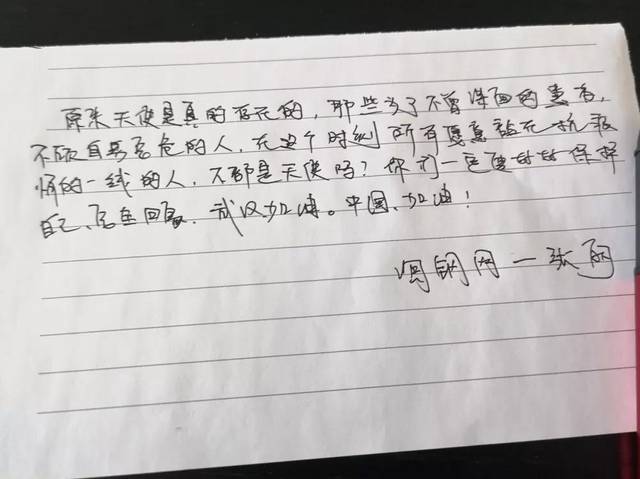 原来天使是真的存在的，那些为了不曾谋面的患者，
不顾自身安危的人，在这个时刻所有愿意站在抗疫
情的一线的人，不都是天使吗？你们一定要好好保护
自己、安全回家，武汉加油。中国、加油！
钢网一张丽